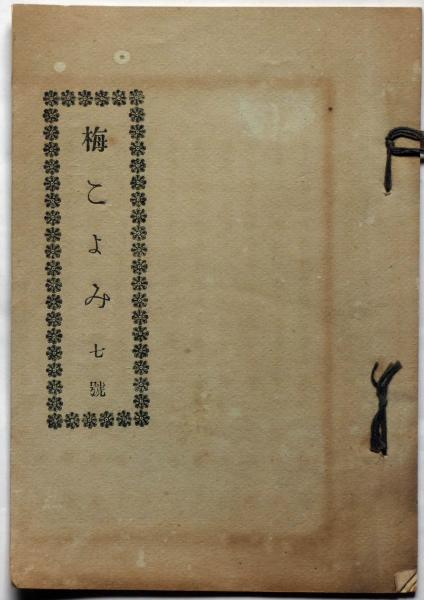 梅こよみ 七號